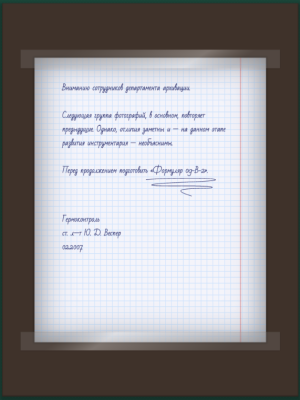 Вниманию сотрудников департамента архивации.
Следующая группа фотографий, в основном, повторяет
предыдущие. Однако, отличия заметны и — на данном этапе
развития инструментария — необъяснимы.
Перед продолжением подготовить «Формуляр од-В-2».
Гермоконтроль
ст. л-т Ю. Д. Веспер
02.2007